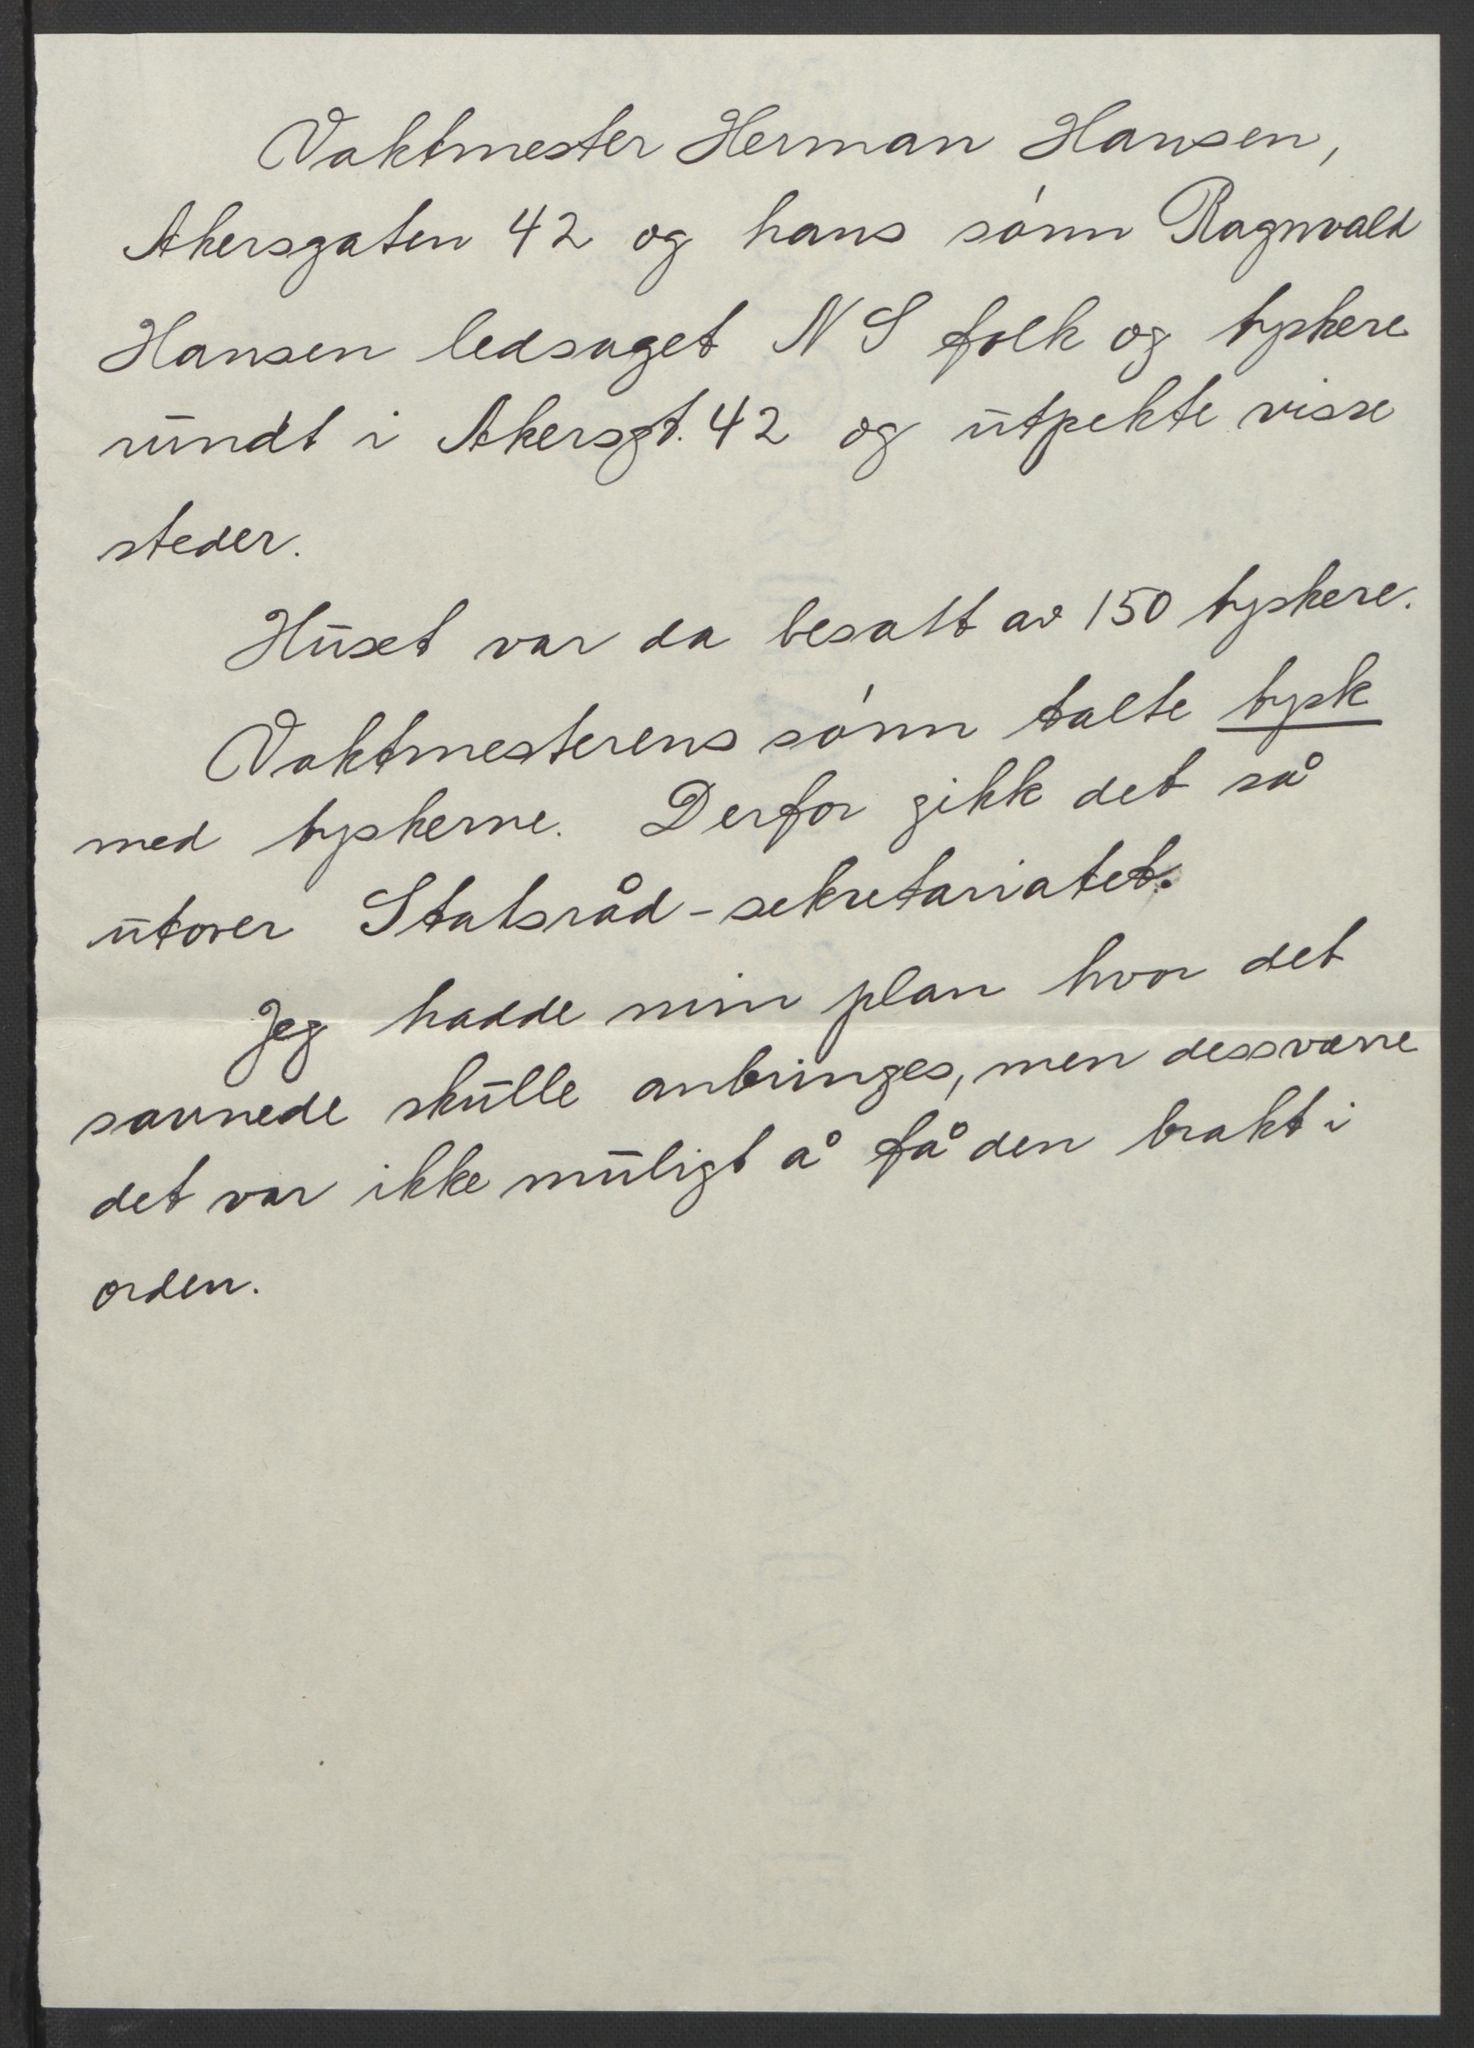 Vaktmester Herman Hansen,
Akersgaten 42 og hans sónn Ragnvald
Hansen ledsaget NS folk og tyskere
rundt i Akersgt. 42 og utpekte visse
steder.
Huset var da besatt av 150 tyskere.
Vaktmesterens sónn talte tysk
med tyskerne. Derfor gikk det så
utover Statsråd-sekretariatet.
Jeg hadde min plan hvor det
savnede skulle anbringes, men dessværre
det var ikke muligt å få den brakt i
orden.